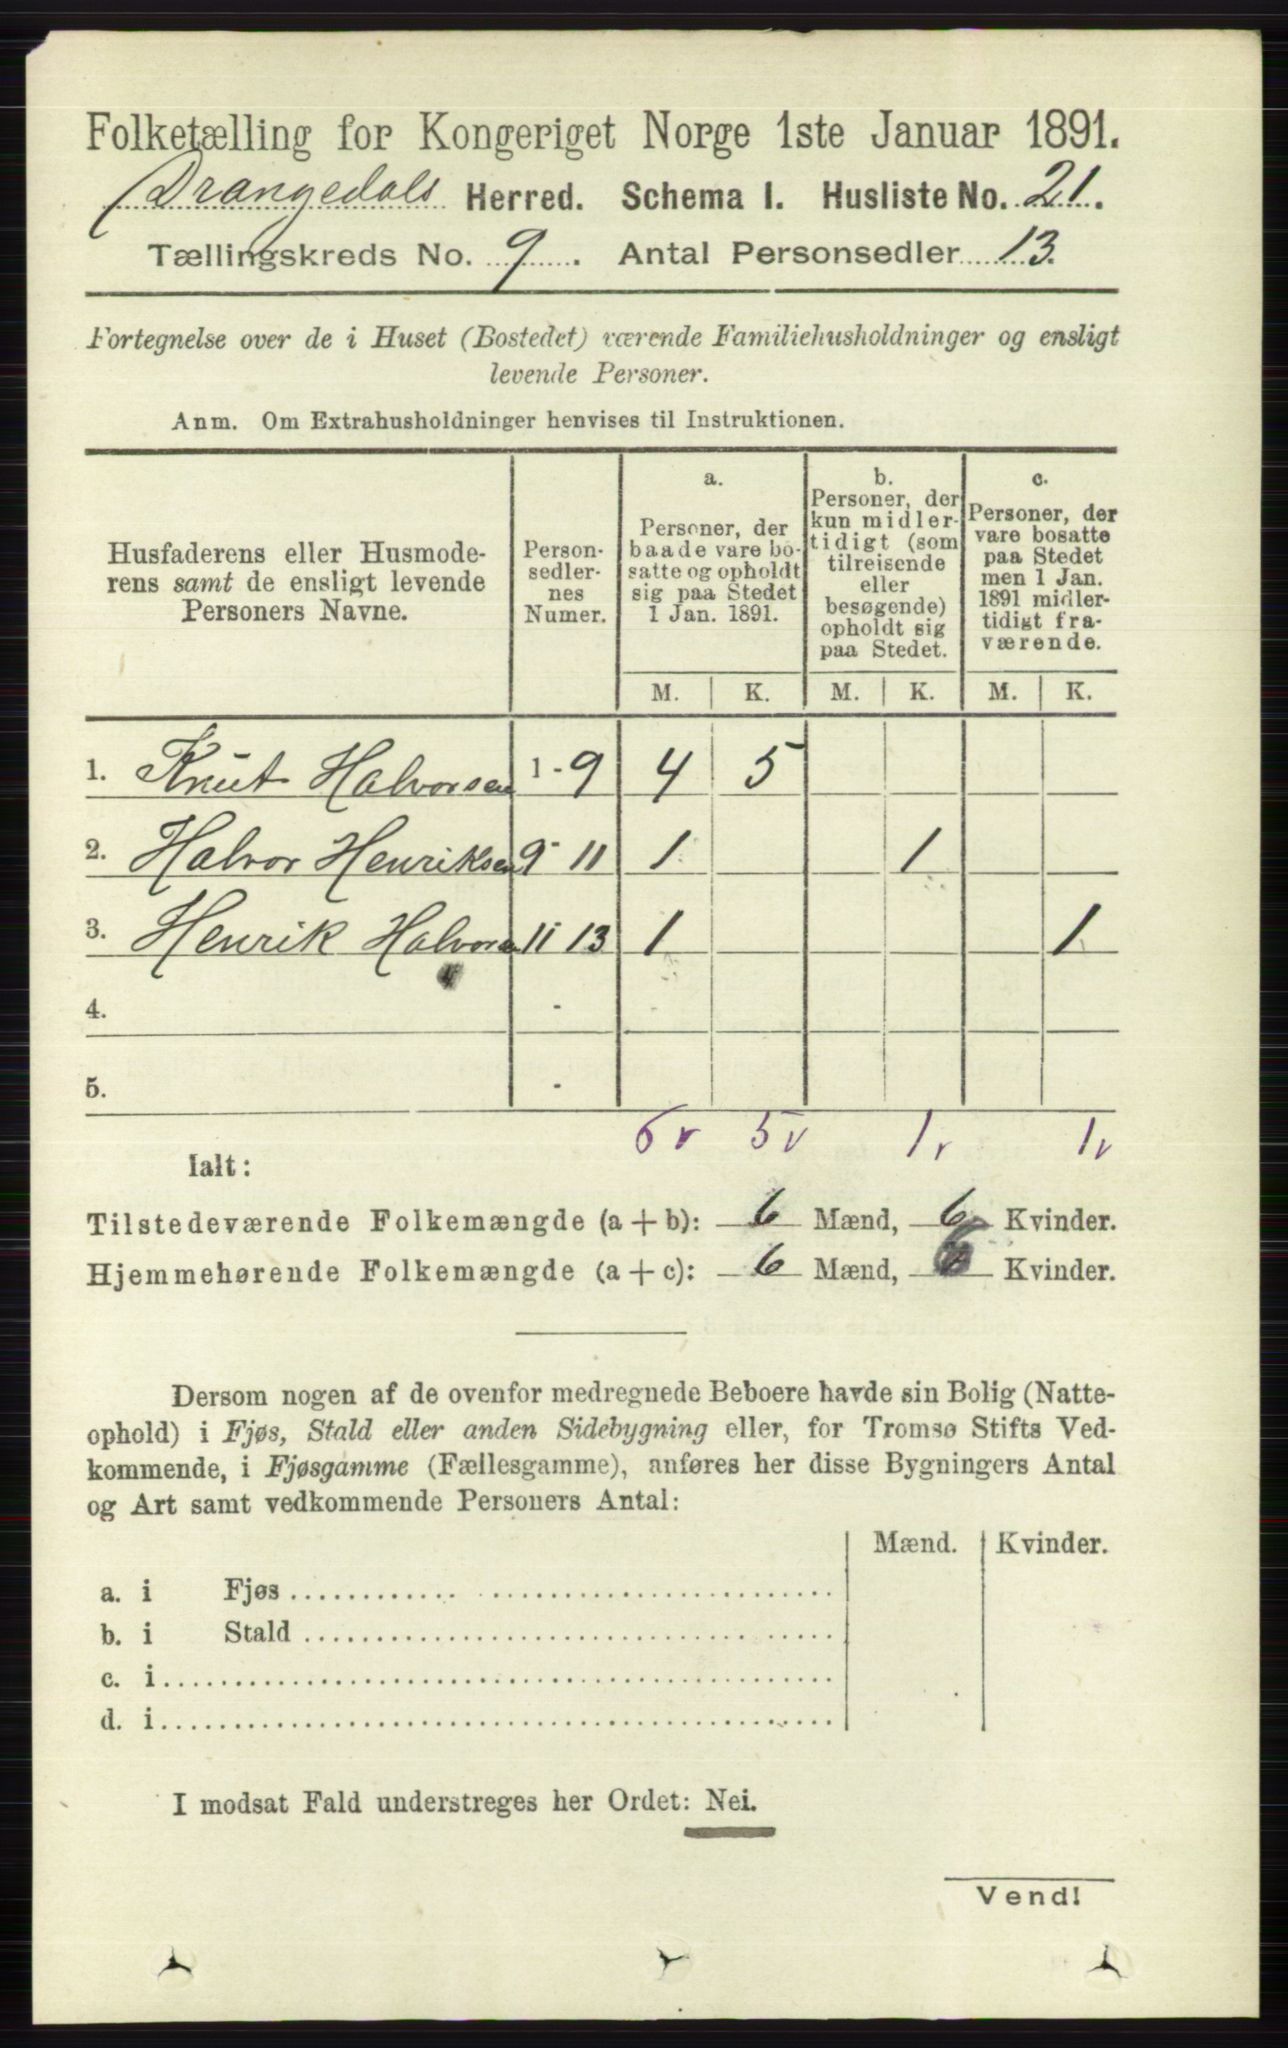 Folketælling for Kongeriget Norge 1ste Januar 1891.
Drangedals Herred. Schema I. Husliste No. 21.
Tællingskreds No. 9. Antal Personsedler 13.
Fortegnelse over de i Huset (Bostedet) værende Familiehusholdninger og ensligt
levende Personer.
Anm. Om Extrahusholdninger henvises til Instruktionen.
Husfaderens eller Husmode-
rens samt de ensligt levende
Personers Navne.
Person-
sedler-
nes
Numer.
a.
Personer, der
baade vare bo-
satte og opholdt
sig paa Stedet
1 Jan. 1891.
b.
Personer, der
kun midler-
tidigt (som
tilreisende
eller
besøgende)
opholdt sig
paa Stedet.
c.
Personer, der
vare bosatte
paa Stedet
men 1 Jan.
1891 midler-
tidigt fra-
værende.
M. K. M. K. M. K.
1. Knut Halvorsen 1 - 9 4 5
2. Halvor Henriksen 9 - 11 1 1
3. Henrik Halvorsen 11 - 13 1 1
4. -
5. -
6 v 5 v 1 v 1 v
Ialt:
Tilstedeværende Folkemængde (a + b): 6 Mænd, 6 Kvinder.
Hjemmehørende Folkemængde (a + c): 6 Mænd, 6 Kvinder.
Dersom nogen af de ovenfor medregnede Beboere havde sin Bolig (Natte-
ophold) i Fjøs, Stald eller anden Sidebygning eller, for Tromsø Stifts Ved-
kommende, i Fjøsgamme (Fællesgamme), anføres her disse Bygningers Antal
og Art samt vedkommende Personers Antal:
Mænd. Kvinder.
a. i Fjøs
b. i Stald
c. i
d. i
I modsat Fald understreges her Ordet: Nei.
Vend!